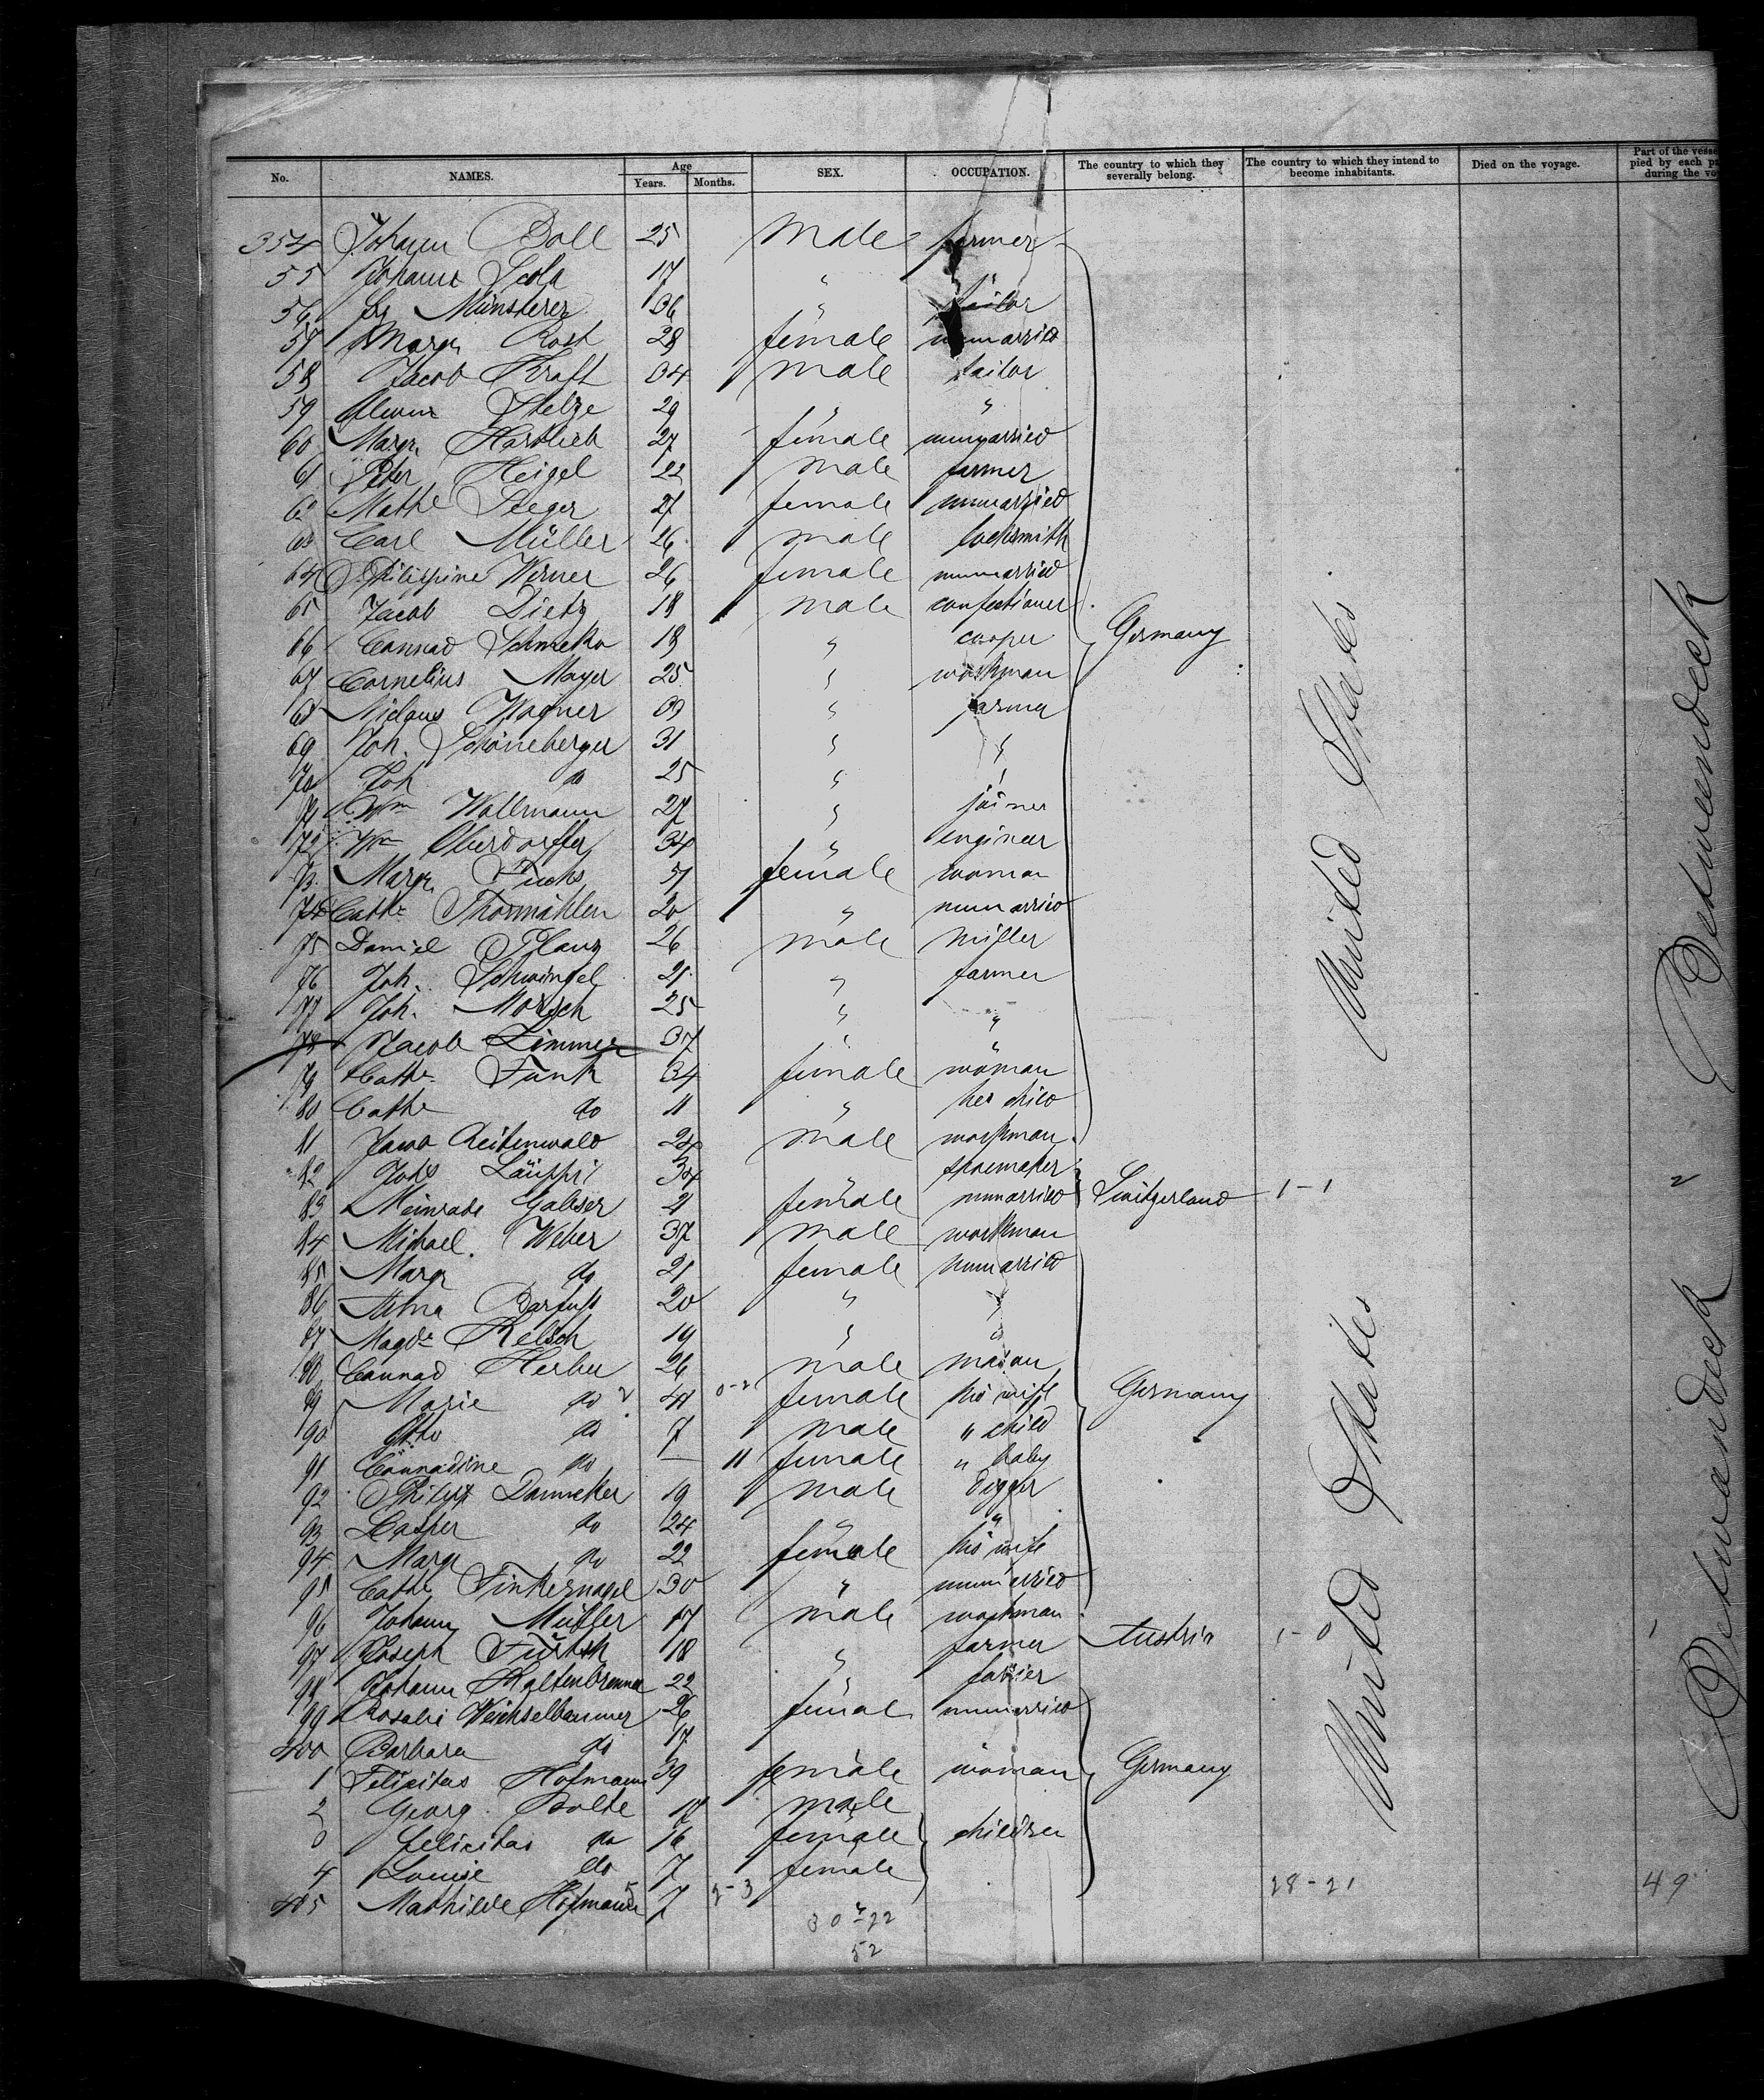 No. NAMES. Age Years. Months. SEX. OCCUPATION. The country to which they severally belong. The country to which they intend to become inhabitants. Died on the voyage. Part of the vesse
pied by each pa
during the vo
354 Johann Boll 25 male farmer
55 Johann 17 " "
56 Münsterer 36 " tailor
57 Margr Rost 28 female unmarried
58 Jacob Kraft 34 male tailor
59 Stelze 29 " "
60 Margr Hartlieb 27 female unmarried
61 Peter Heigel 22 male farmer
62 Mathe Steger 27 female unmarried
63 Carl Müller 26 male locksmith
64 Philippine Werner 26 female unmarried
65 Jacob Dietz 18 male confectioner
66 Connad 18 " cooper Germany
67 Cornelius Mayer 25 " workman
68 Niclaus Wagner 39 " farmer
69 Joh. Schöneberger 31 " "
70 Joh do 25 " "
71 Wm Wollmann 27 " joiner
72 Wm Oberdorffer 34 " engineer
73 Margr Fuchs 51 female woman
74 Cathe Thormählen 20 " unmarried
75 Daniel Planz 26 male miller
76 Joh. Schwingel 21 " farmer
77 Joh. Morsch 25 " "
78 Jacob Zimmer 37 " "
79 Cathe Funk 34 female woman
80 Cathe do 11 " her child
81 Jacob Reitenwald 24 male workman
82 Johs Läuppi 34 " shoemaker
83 Meinrade Gallser 21 female unmarried Switzerland 1-1 2
84 Michael Weber 37 male workman
85 Margr do 21 female unmarried
86 Anna Barfuss 20 " "
87 Magde Kelsch 19 " "
88 Connad Herber 26 male mason
89 Marie do 2 41 0-2 female his wife Germany
190 Otto do 7 male " child
91 Connadine do — 11 female " baby
92 Philipp Dannecker 19 male digger
93 Casper do 24 " "
94 Margr do 22 female his wife
95 Cathe Finkernagel 30 " unmarried
96 Johann Müller 17 male workman
97 Joseph Fürtsh 18 " farmer Austria 1-0 1
98 Johann Kaltenbrenner 22 " farrier
99 Rosalie Weichselbaumer 26 female unmarried
400 Barbara do 17
1 Felicitas Hofmann 39 female woman Germany
2 Georg Bolte 18 male
3 Felicitas do 16 female children
4 Louise do 7 female
405 Mathilde Hofmann 7 2-3 " 28-21 49
30-22
52
United States
United States
Betweendeck
Betweendeck